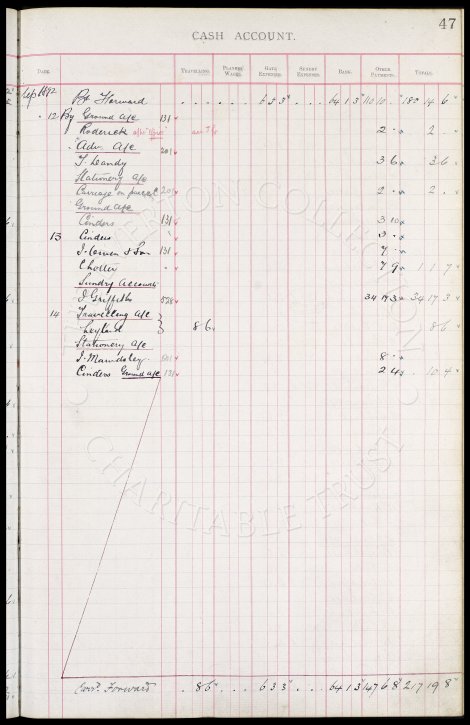 47
CASH ACCOUNT.
DATE. TRAVELLING. PLAYERS' WAGES. GATE EXPENSES. SUNDRY EXPENSES. BANK. OTHER PAYMENTS. TOTALS.
Sept 1892 Bt Forward 6 5 3 64 1 3 110 10 180 14 6
12 By Ground a/c 131
Roderick 2 2
Adv. a/c 201
T. Dandy 3 6 3 6
Stationery a/c
Carriage on parcel 201 2 2
Ground a/c
Cinders 131 3 10
13 Cinders 3
J. & Son 131 7
7 9 1 1 7
Sundry Accounts
J. Griffiths 34 17 3 34 17 3
14 Travelling a/c
Leyland 8 6 8 6
Stationery a/c
J. 201 8
Cinders Ground a/c 131 2 4 10 4
Carrd. Forward 8 6 6 5 3 64 1 3 147 6 8 217 19 8
EVERTON COLLECTION
CHARITABLE TRUST